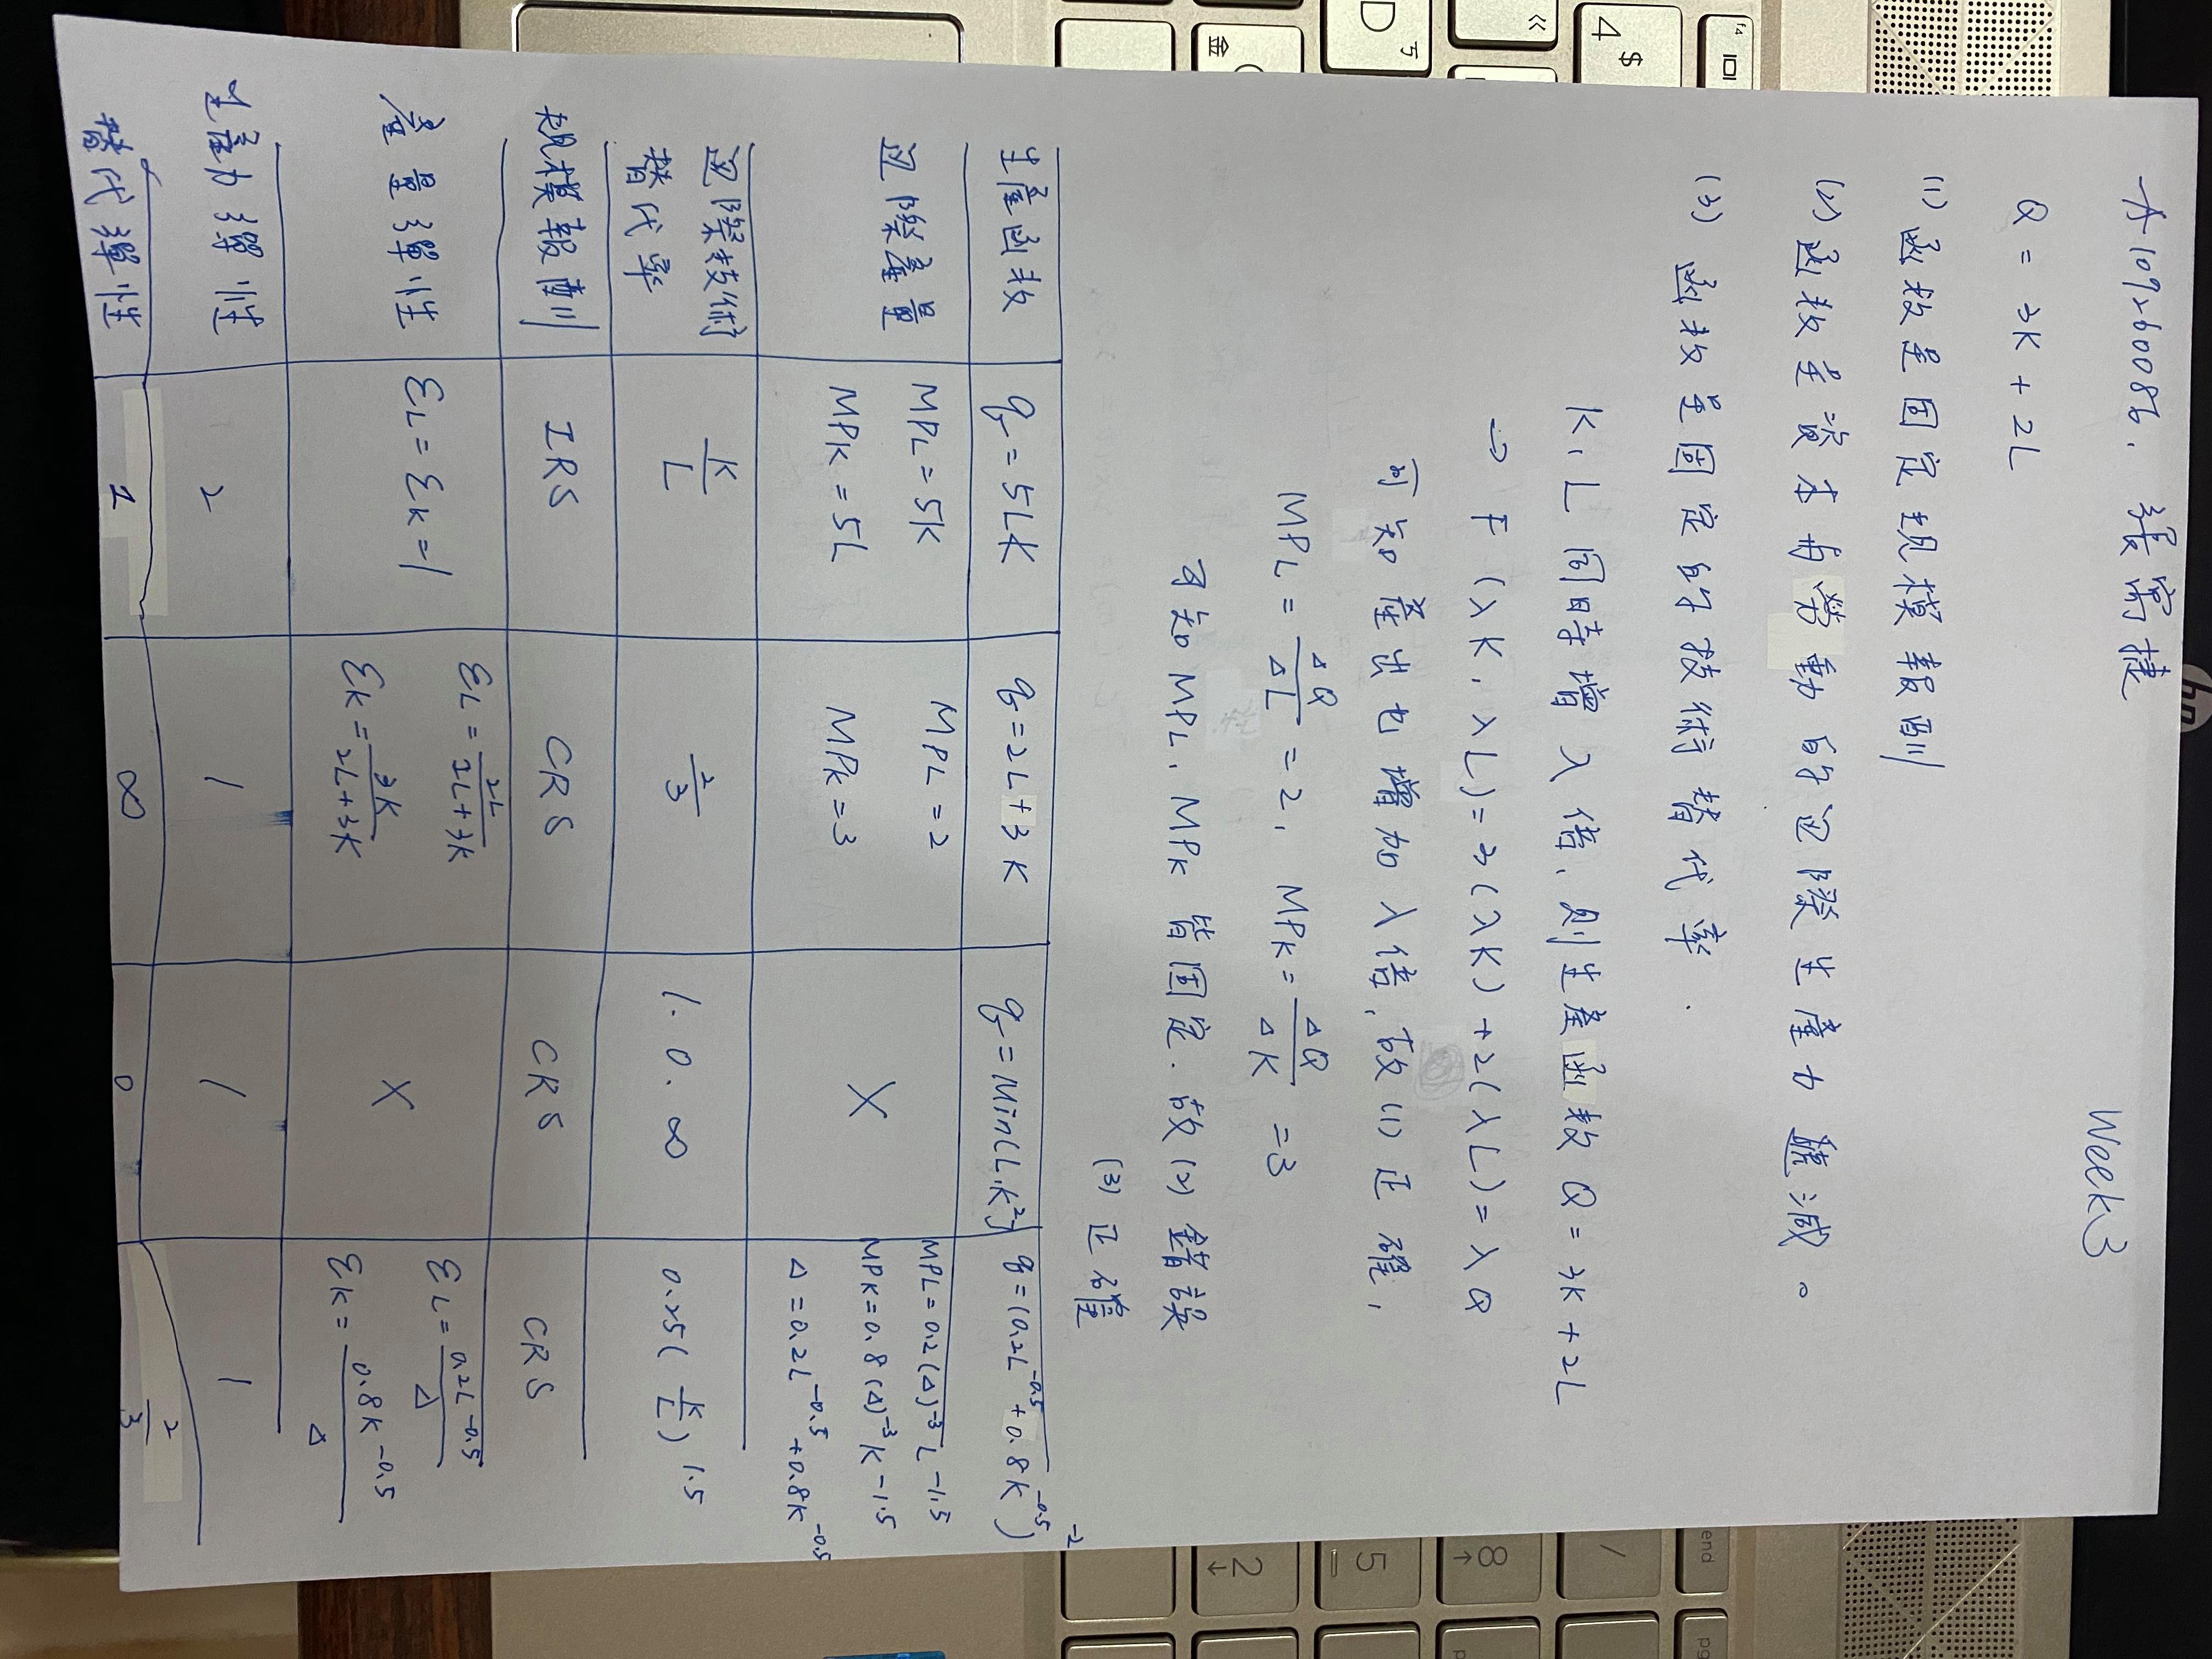 A109260086. 張甯捷
Week3
Q = 3K + 2L
(1) 函數呈固定規模報酬
(2) 函數呈資本與勞動的邊際生產力遞減。
(3) 函數呈固定的技術替代率.
K、L 同時增 λ 倍, 則生產函數 Q = 3K + 2L
→ F (λK, λL) = 3(λK) + 2(λL) = λQ
可知產出也增加 λ 倍, 故 (1) 正確,
MPL = ΔQ/ΔL = 2, MPK = ΔQ/ΔK = 3
可知 MPL、MPK 皆固定. 故 (2) 錯誤
(3) 正確
生產函數 q = 5LK q = 2L+3K q = Min(L, K²) q = (0.2L^-0.5 + 0.8K^-0.5)^-2
邊際產量 MPL = 5K MPK = 5L MPL = 2 MPK = 3 X MPL = 0.2(Δ)^-3 L^-1.5 MPK = 0.8(Δ)^-3 K^-1.5 Δ = 0.2L^-0.5 + 0.8K^-0.5
邊際技術替代率 K/L 2/3 1. 0. ∞ 0.25(K/L)^1.5
規模報酬 IRS CRS CRS CRS
產量彈性 εL = εK = 1 εL = 2L/2L+3K εK = 3K/2L+3K X εL = 0.2L^-0.5/Δ εK = 0.8K^-0.5/Δ
生產力彈性 2 1 1 1
替代彈性 1 ∞ 0 2/3
4 $
D
金
8
5
2
end
pg
hp